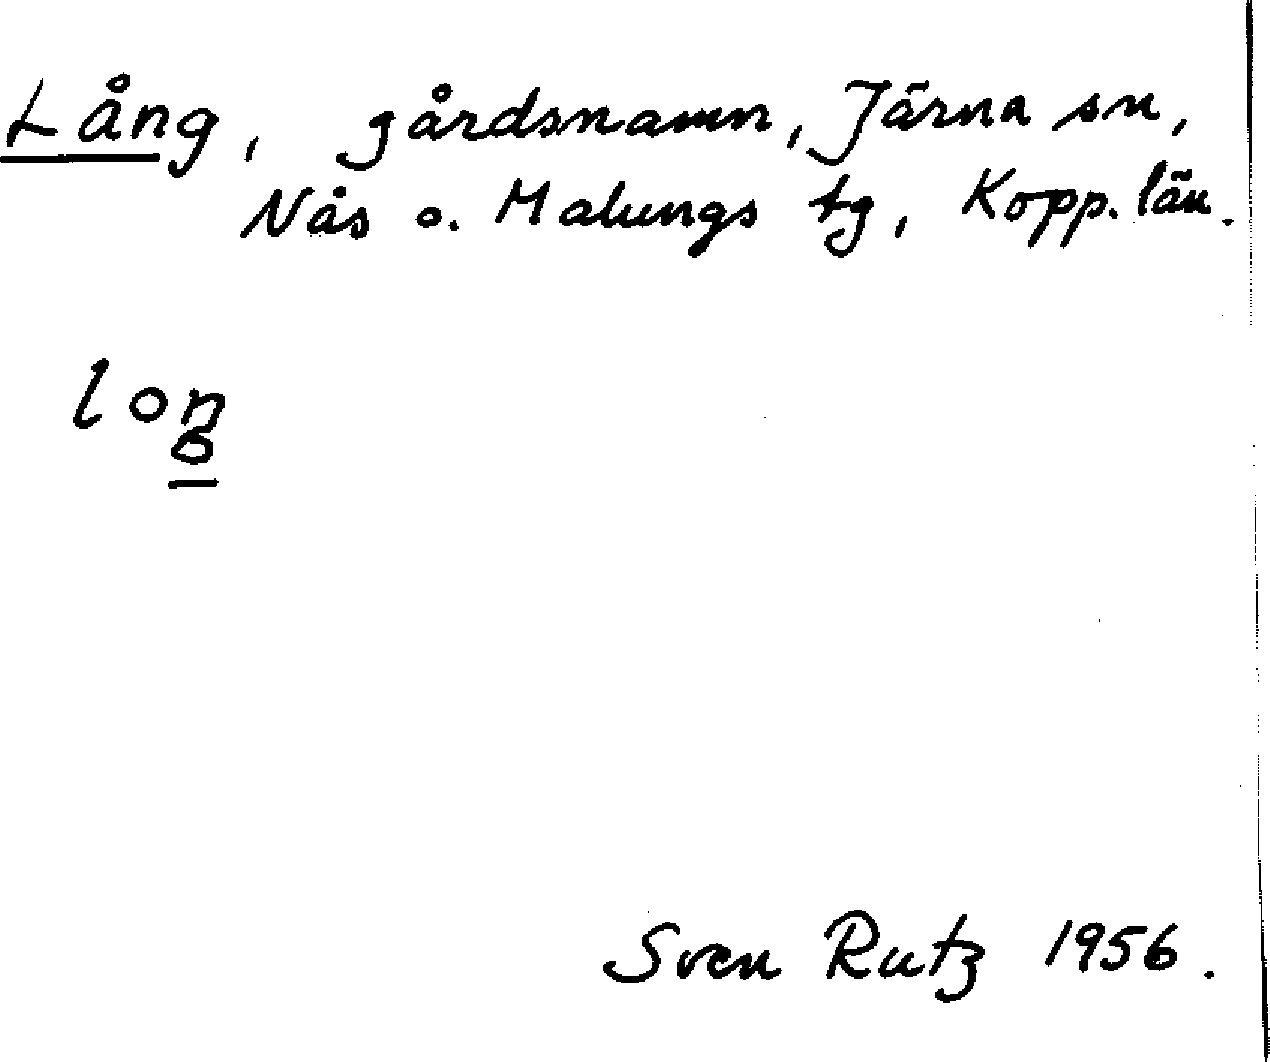 Lång, gårdsnamn, Järna sn,
Nås o. Malungs tg, Kopp. län.
loŋ
Sven Rutz 1956.